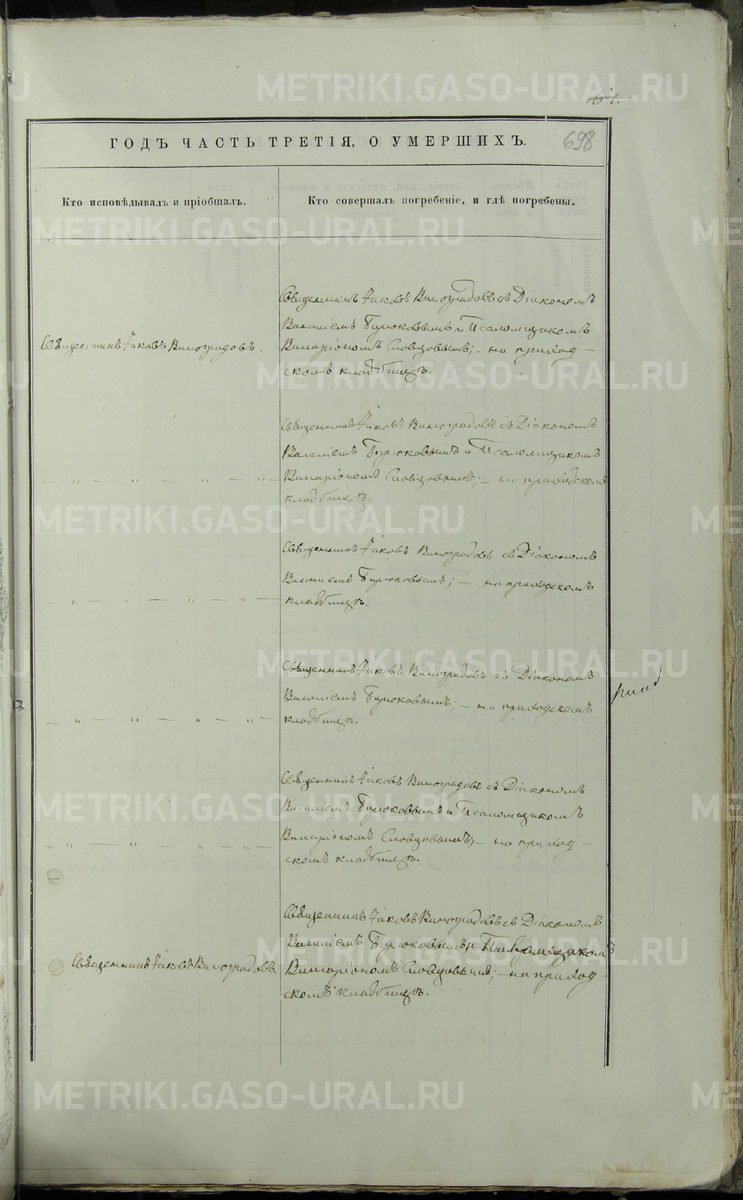 61.
698
ГОДЪ ЧАСТЬ ТРЕТІЯ, О УМЕРШИХЪ.
Кто исповѣдывалъ и пріобщалъ.
Кто совершалъ погребеніе, и гдѣ погребены.
Священникъ Іаковъ Виноградовъ.
Священникъ Іаковъ Виноградовъ съ Діакономъ
Василіемъ Бирюковымъ и Псаломщикомъ
Иларіономъ Словцовымъ; – на приход-
скомъ кладбищѣ.
Священникъ Іаковъ Виноградовъ съ Діакономъ
Василіемъ Бирюковымъ и Псаломщикомъ
" — " — " — " —
Иларіономъ Словцовымъ; – на приходскомъ
кладбищѣ.
Священникъ Іаковъ Виноградовъ съ Діакономъ
Василіемъ Бирюковымъ; – на приходскомъ
" — " — " — " —
кладбищѣ.
Священникъ Іаковъ Виноградовъ съ Діакономъ
Василіемъ Бирюковымъ; – на приходскомъ
" — " — " — " —
кладбищѣ.
Священникъ Іаковъ Виноградовъ съ Діакономъ
Василіемъ Бирюковымъ и Псаломщикомъ
" — " — " — " —
Иларіономъ Словцовымъ; – на приход-
скомъ кладбищѣ.
Священникъ Іаковъ Виноградовъ съ Діакономъ
Василіемъ Бирюковымъ и Псаломщикомъ
Священникъ Іаковъ Виноградовъ.
Иларіономъ Словцовымъ; – на приход-
скомъ кладбищѣ.
METRIKI.GASO-URAL.RU